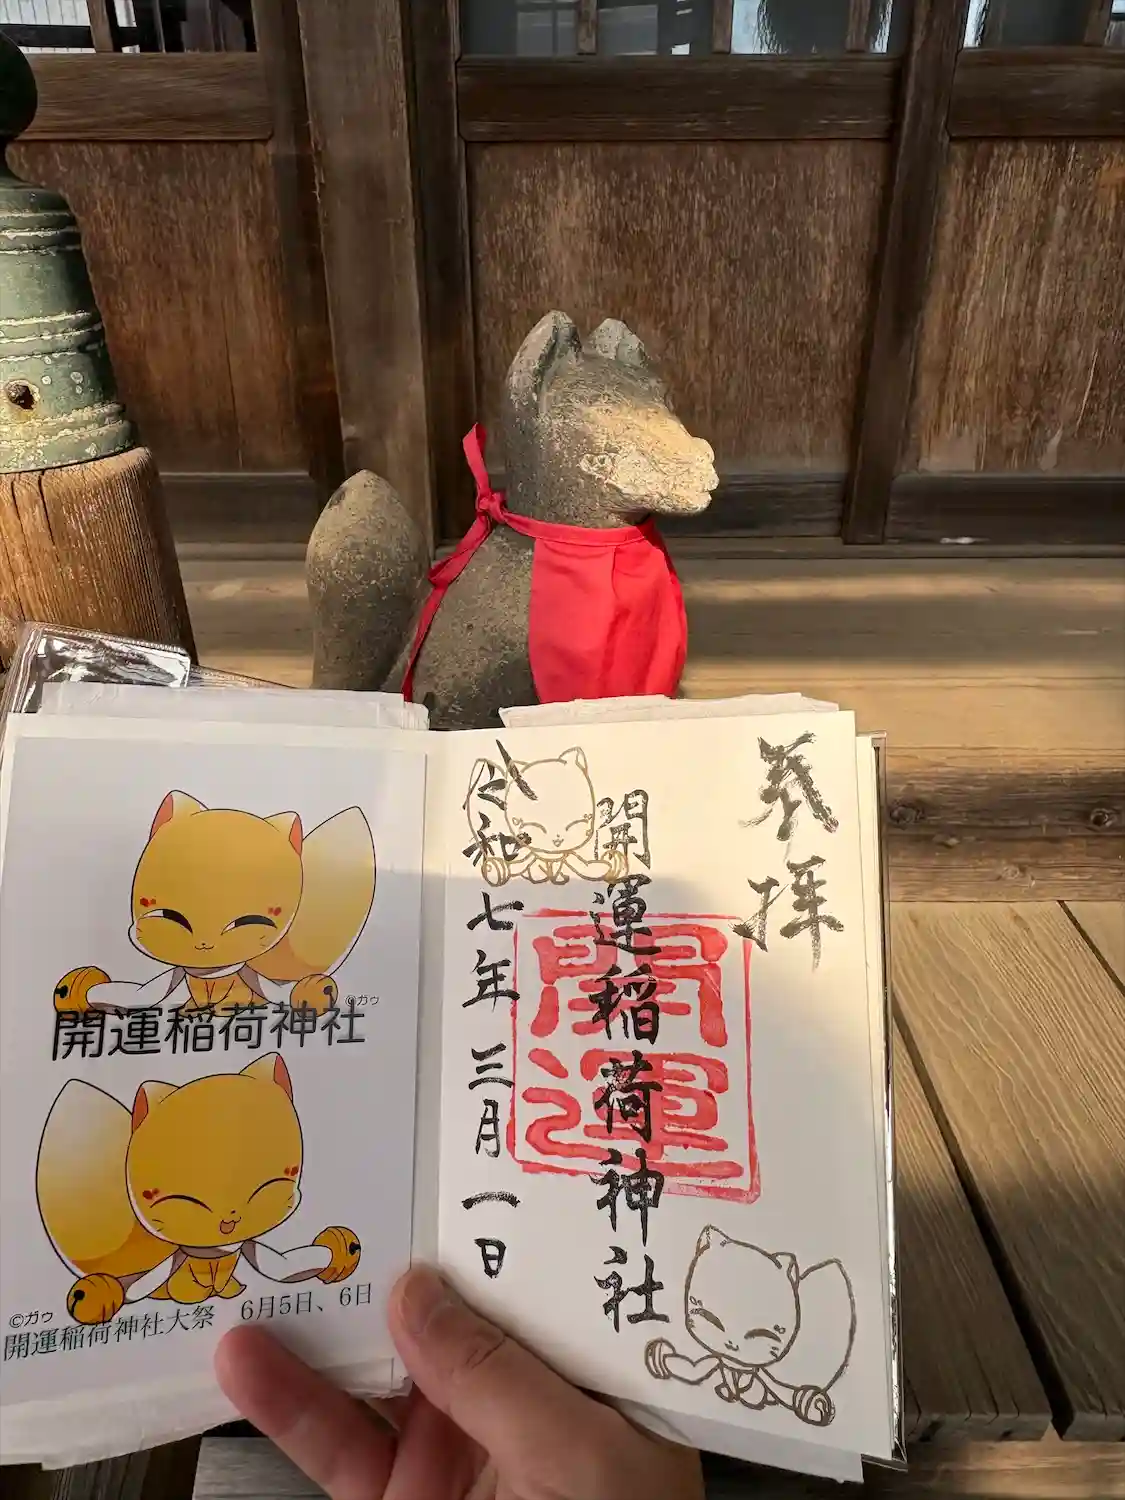 奉拝
開運稲荷神社
開運
令和七年三月一日
©ガゥ
開運稲荷神社
©ガゥ
開運稲荷神社大祭 6月5日、6日